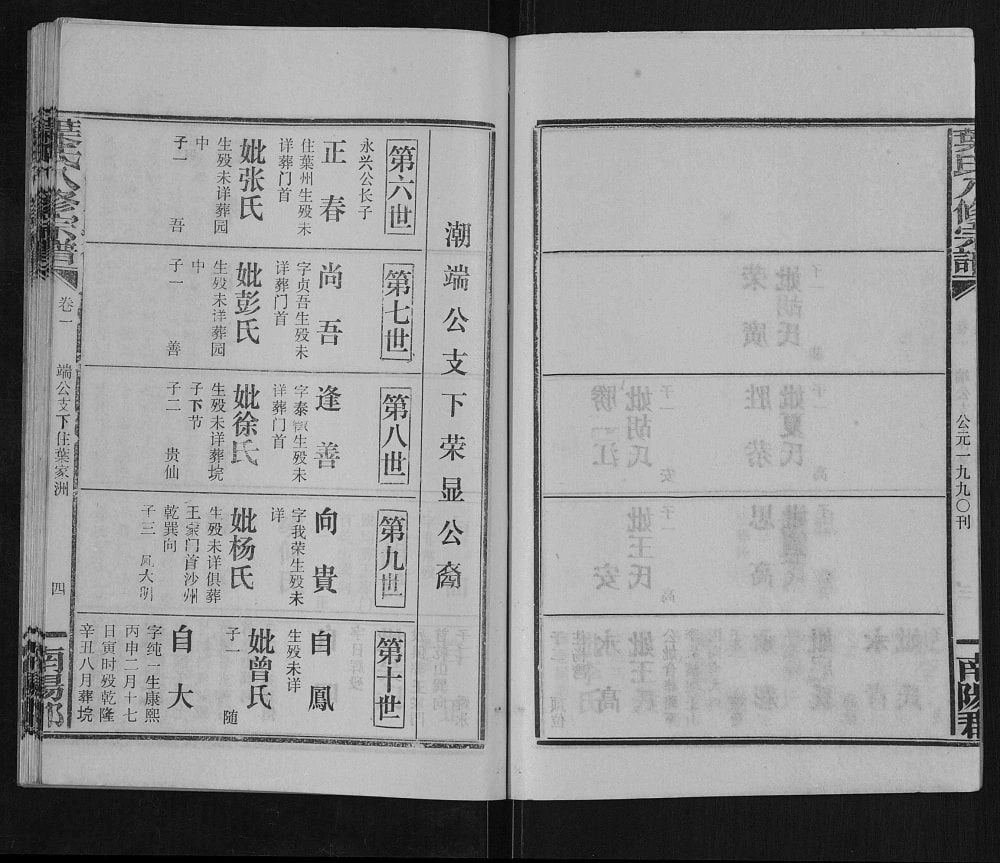 公元一九九〇刊
潮端公支下荣显公裔
第六世
永兴公长子
正春
住葉州生殁未
详葬门首
妣张氏
生殁未详葬园
中
子一 吾
第七世
尚吾
字贞吾生殁未
详葬门首
妣彭氏
生殁未详葬园
中
子一 善
第八世
逢善
字泰 生殁未
详葬门首
妣徐氏
生殁未详葬垸
子下节
子二 贵仙
第九世
向貴
字我荣生殁未
详
妣杨氏
生殁未详俱葬
王家门首沙州
乾巽向
子三 凤大明
第十世
自鳳
生殁未详
妣曾氏
子一 随
自大
字纯一生康熙
丙申二月十七
日寅时殁乾隆
辛丑八月葬垸
葉氏八修宗谱
卷一
端公支下住葉家洲
四
南陽郡